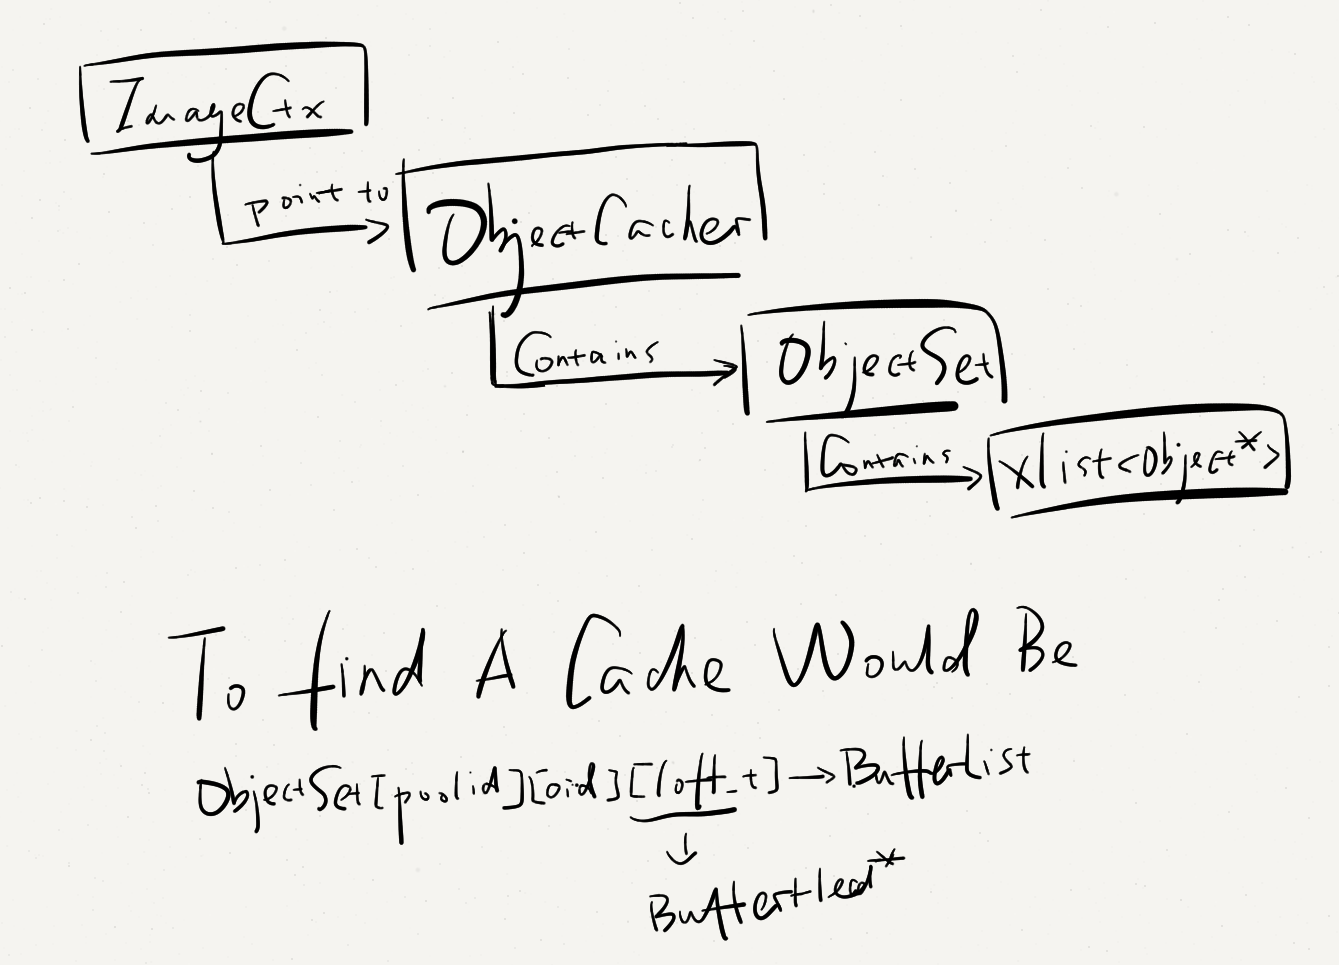 ImageCtx
point to
ObjectCacher
Contains
ObjectSet
Contains
xlist<Object*>
To find A Cache Would Be
ObjectSet[poolid][oid][loff_t]→BufferList
↓
BufferHead*